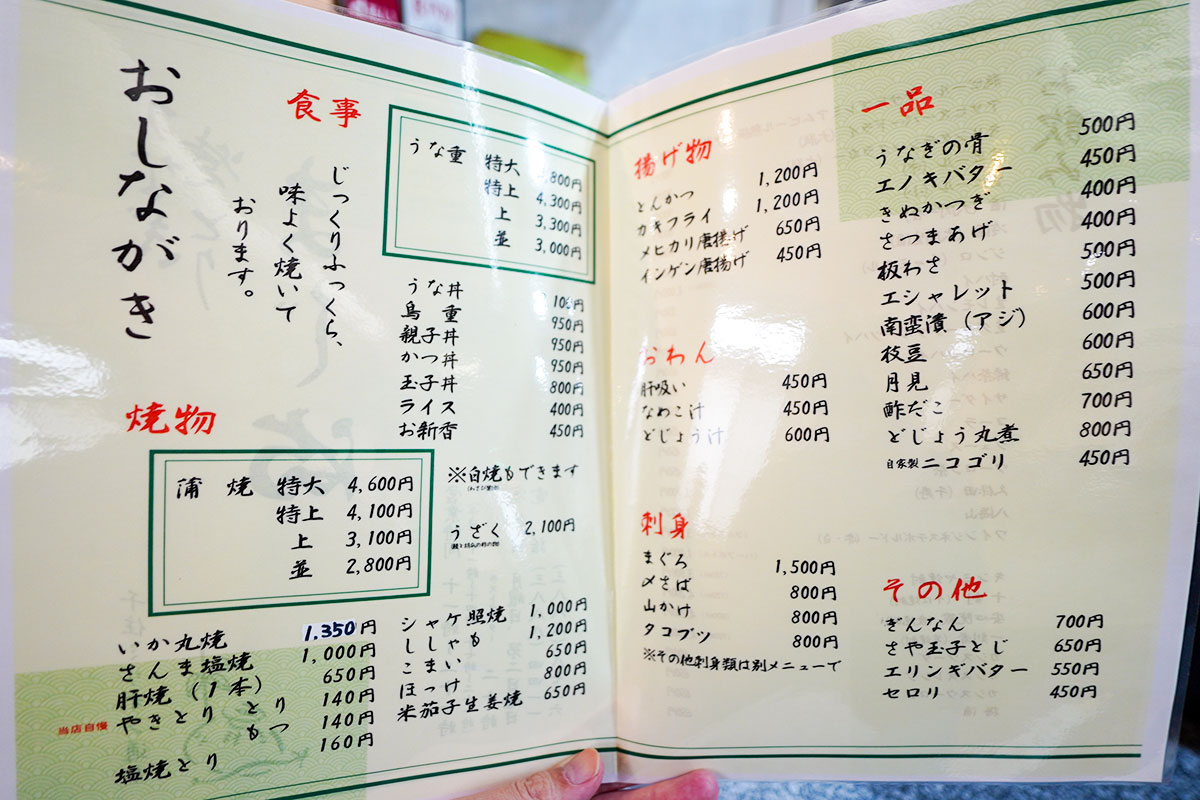 おしながき
食事
じっくりふっくら、
味よく焼いて
おります。
うな重 特大 800円
特上 4,300円
上 3,300円
並 3,000円
うな丼 100円
鳥重 950円
親子丼 950円
かつ丼 950円
玉子丼 800円
ライス 400円
お新香 450円
※白焼もできます
うざく 2,100円
焼物
蒲焼 特大 4,600円
特上 4,100円
上 3,100円
並 2,800円
いか丸焼 1,350円
さんま塩焼 1,000円
肝焼(1本) 650円
当店自慢 やきとり とり 140円
もつ 140円
塩焼とり 160円
シャケ照焼 1,000円
ししゃも 1,200円
こまい 650円
ほっけ 800円
米茄子生姜焼 650円
揚げ物
とんかつ 1,200円
カキフライ 1,200円
メヒカリ唐揚げ 650円
インゲン唐揚げ 450円
おわん
肝吸い 450円
なめこ汁 450円
どじょう汁 600円
刺身
まぐろ 1,500円
〆さば 800円
山かけ 800円
タコブツ 800円
※その他刺身類は別メニューで
一品
うなぎの骨 500円
エノキバター 450円
きぬかつぎ 400円
さつまあげ 400円
板わさ 500円
エシャレット 500円
南蛮漬(アジ) 600円
枝豆 600円
月見 650円
酢だこ 700円
どじょう丸煮 800円
自家製ニコゴリ 450円
その他
ぎんなん 700円
さや玉子とじ 650円
エリンギバター 550円
セロリ 450円